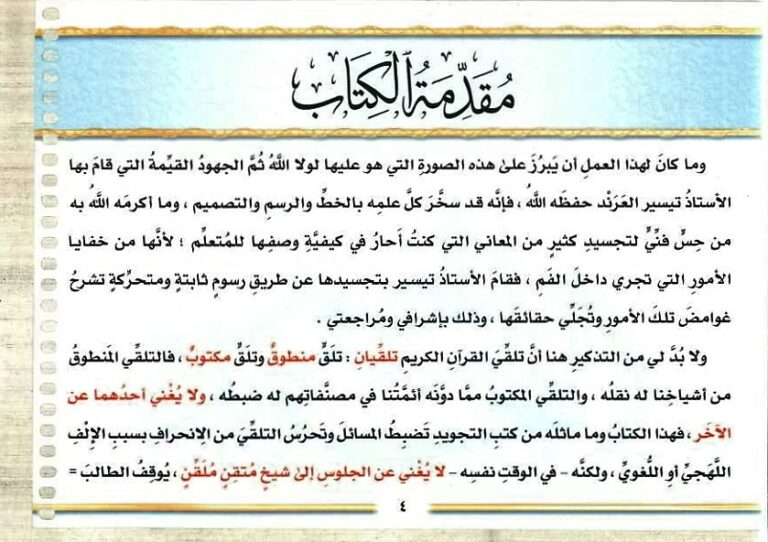 مُقَدِّمَةُ ٱلْكِتَابِ
وما كانَ لهذا العملِ أن يَبرُزَ علىٰ هذه الصورةِ التي هو عليها لولا اللَّهُ ثُمَّ الجهودُ القيِّمةُ التي قامَ بها
الأستاذُ تيسير العَرَند حفظَه اللَّهُ ، فإنَّه قد سخَّرَ كلَّ علمِه بالخطِّ والرسمِ والتصميم ، وما أكرمَه اللَّهُ به
من حِسٍّ فنِّيٍّ لتجسيدِ كثيرٍ من المعاني التي كنتُ أَحارُ في كيفيَّةِ وصفِها للمُتعلِّم ؛ لأنَّها من خفايا
الأمورِ التي تجري داخلَ الفَمِ ، فقامَ الأستاذُ تيسير بتجسيدِها عن طريقِ رسومٍ ثابتةٍ ومتحرِّكةٍ تشرحُ
غوامضَ تلكَ الأمورِ وتُجَلِّي حقائقَها ، وذلك بإشرافي ومُراجعتي .
ولا بُدَّ لي من التذكيرِ هنا أنَّ تلقِّيَ القرآنِ الكريم تلقِّيانِ : تلَقٍّ منطوقٌ وتلَقٍّ مكتوبٌ ، فالتلقِّي المَنطوقُ
من أشياخِنا له نقلُه ، والتلقِّي المكتوبُ ممَّا دوَّنَه أئمَّتُنا في مصنَّفاتِهم له ضبطُه ، ولا يُغْني أحدُهما عن
الآخَر ، فهذا الكتابُ وما ماثلَه من كتبِ التجويدِ تَضبِطُ المسائلَ وتَحرُسُ التلقِّيَ من الِانحرافِ بسببِ الإِلْفِ
اللَّهجيِّ أوِ اللُّغويِّ ، ولكنَّه - في الوقتِ نفسِه - لا يُغْني عن الجلوسِ إلىٰ شيخٍ مُتقِنٍ مُلَقِّنٍ ، يُوقِفُ الطالبَ =
٤